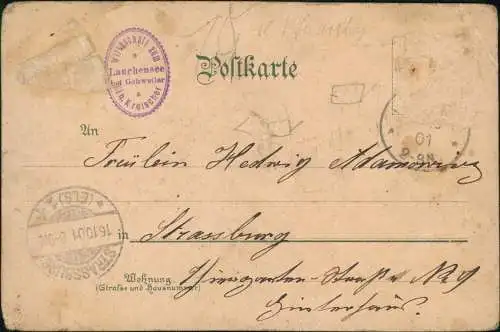 WIRTSCHAFT ZUM
Lauchensee
bei Gebweiler
Postkarte
01
An
Fräulein Hedwig Adamowicz
in Strassburg
(ELS)
16.10.01
STRASSBURG
Wohnung
(Straße und Hausnummer)
Straße No 9
Hinterhaus.